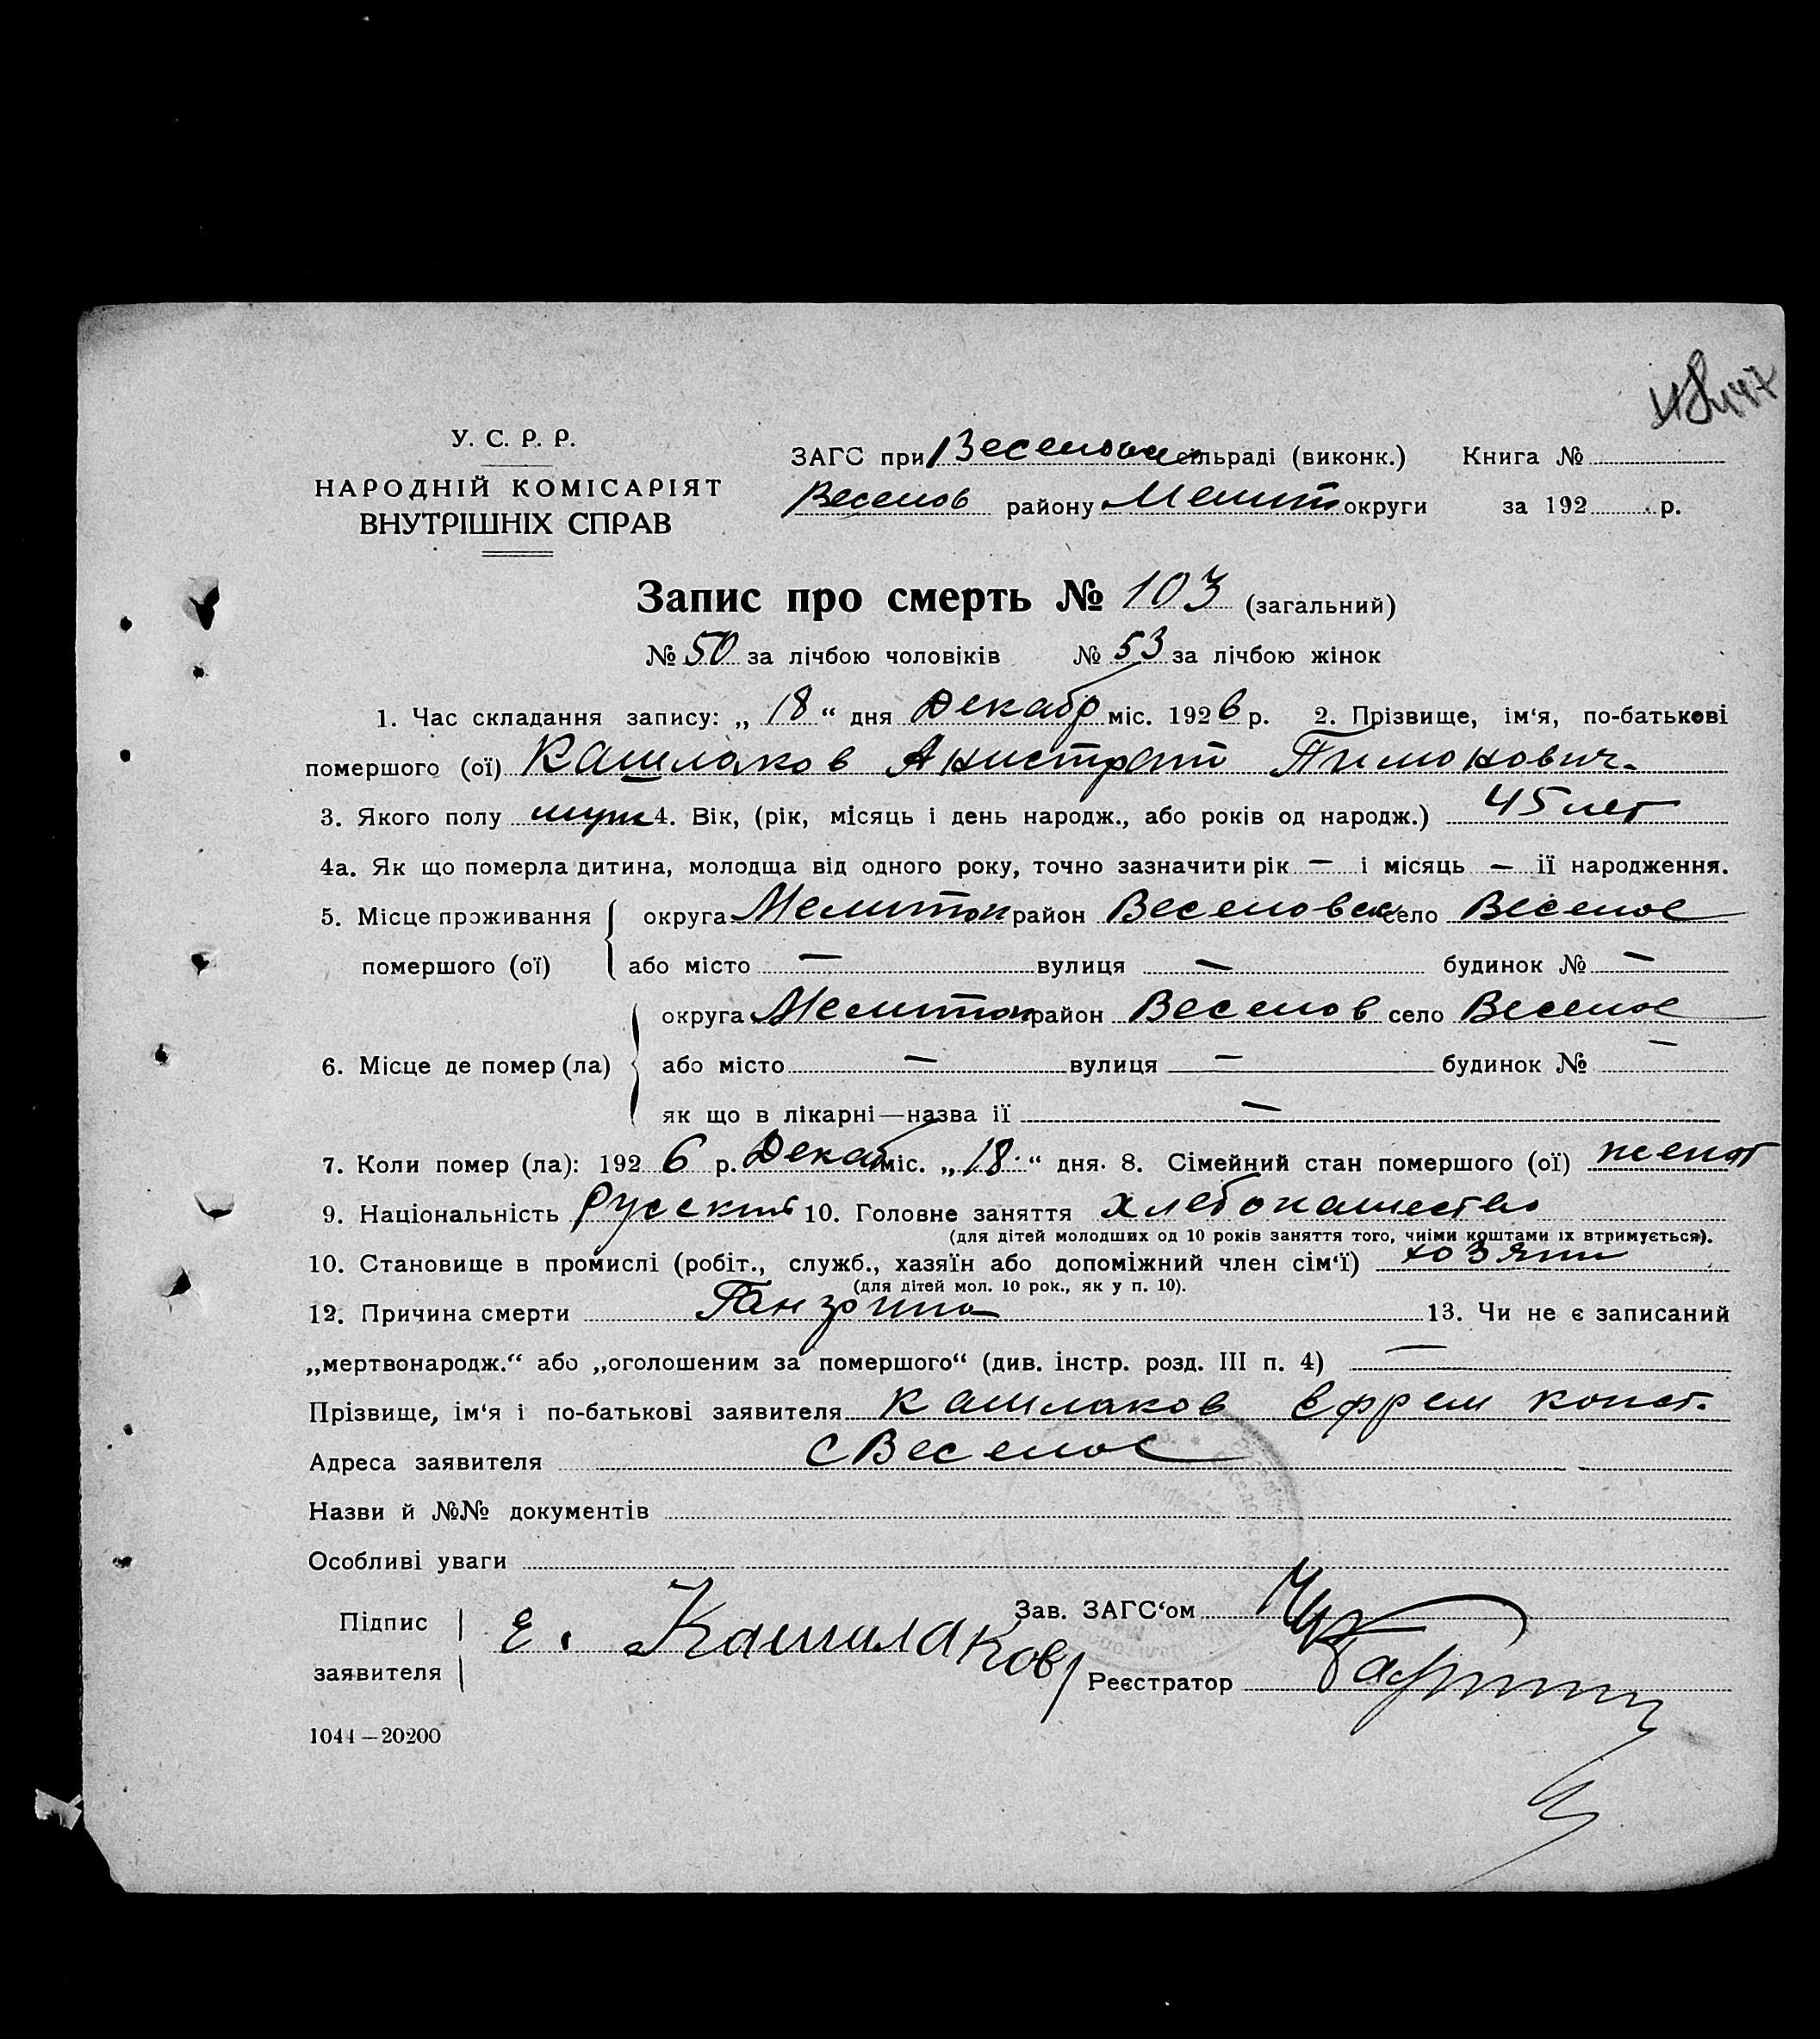 У. С. Р. Р.
НАРОДНІЙ КОМІСАРІЯТ
ВНУТРІШНІХ СПРАВ
ЗАГС при Веселовск сільраді (виконк.) Книга №
Веселов району Мелит округи за 192 р.
Запис про смерть № 103 (загальний)
№ 50 за лічбою чоловіків № 53 за лічбою жінок
1. Час складання запису: „ 18 “ дня Декабр міс. 1926 р. 2. Прізвище, ім‘я, по-батькові
помершого (ої) Кашлаков Анистрат Пимонович.
3. Якого полу муж 4. Вік, (рік, місяць і день народж., або років од народж.) 45 лет
4а. Як що померла дитина, молодща від одного року, точно зазначити рік — і місяць — її народження.
5. Місце проживання округа Мелитоп район Веселовск село Веселое
помершого (ої) або місто — вулиця — будинок № —
округа Мелитоп район Веселов село Веселое
6. Місце де помер (ла) або місто — вулиця — будинок № —
як що в лікарні—назва її —
7. Коли помер (ла): 1926 р. Декаб міс. „ 18 “ дня. 8. Сімейний стан помершого (ої) женат
9. Національність Русский 10. Головне заняття хлебопашество
(для дітей молодших од 10 років заняття того, чиїми коштами їх втримується).
10. Становище в промислі (робіт., служб., хазяїн або допоміжний член сім‘ї) хозяин
(для дітей мол. 10 рок., як у п. 10).
12. Причина смерти 13. Чи не є записаний
„мертвонародж.“ або „оголошеним за помершого“ (див. інстр. розд. III п. 4) —
Прізвище, ім‘я і по-батькові заявителя Кашлаков Ефрем Конст.
Адреса заявителя С Веселое
Назви й №№ документів
Особливі уваги
Підпис
заявителя
Е. Кашлаков
Зав. ЗАГС‘ом
Реєстратор
1044—20200